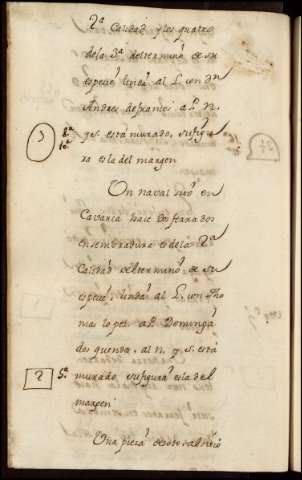 2ª Calidad y los quatro
de la 3ª del termino de su
espezie linda al L. con Dn
Andres al P. N.
y S. está murado, su figu
ra es la del margen
3
Un naval sito en
Cavarca haze dos ferrados
en sembradura es de la 2ª
Calidad del termino de su
espezie linda al L. con Tho
mas lopez al P. Domingª
dos quenda al N. y S. está
murado, su figura es la del
margen
2 5ª
Una pieza